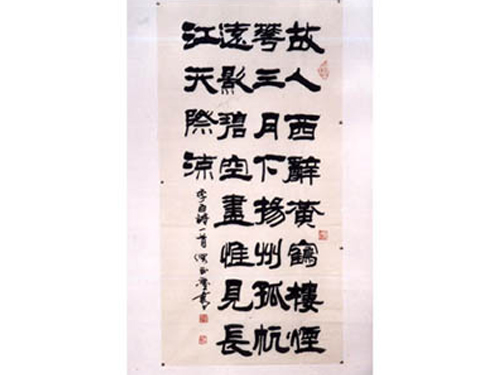 故人西辭黃鶴樓煙
華三月下揚州孤帆
遠影碧空盡惟見長
江天際流
李白詩一首